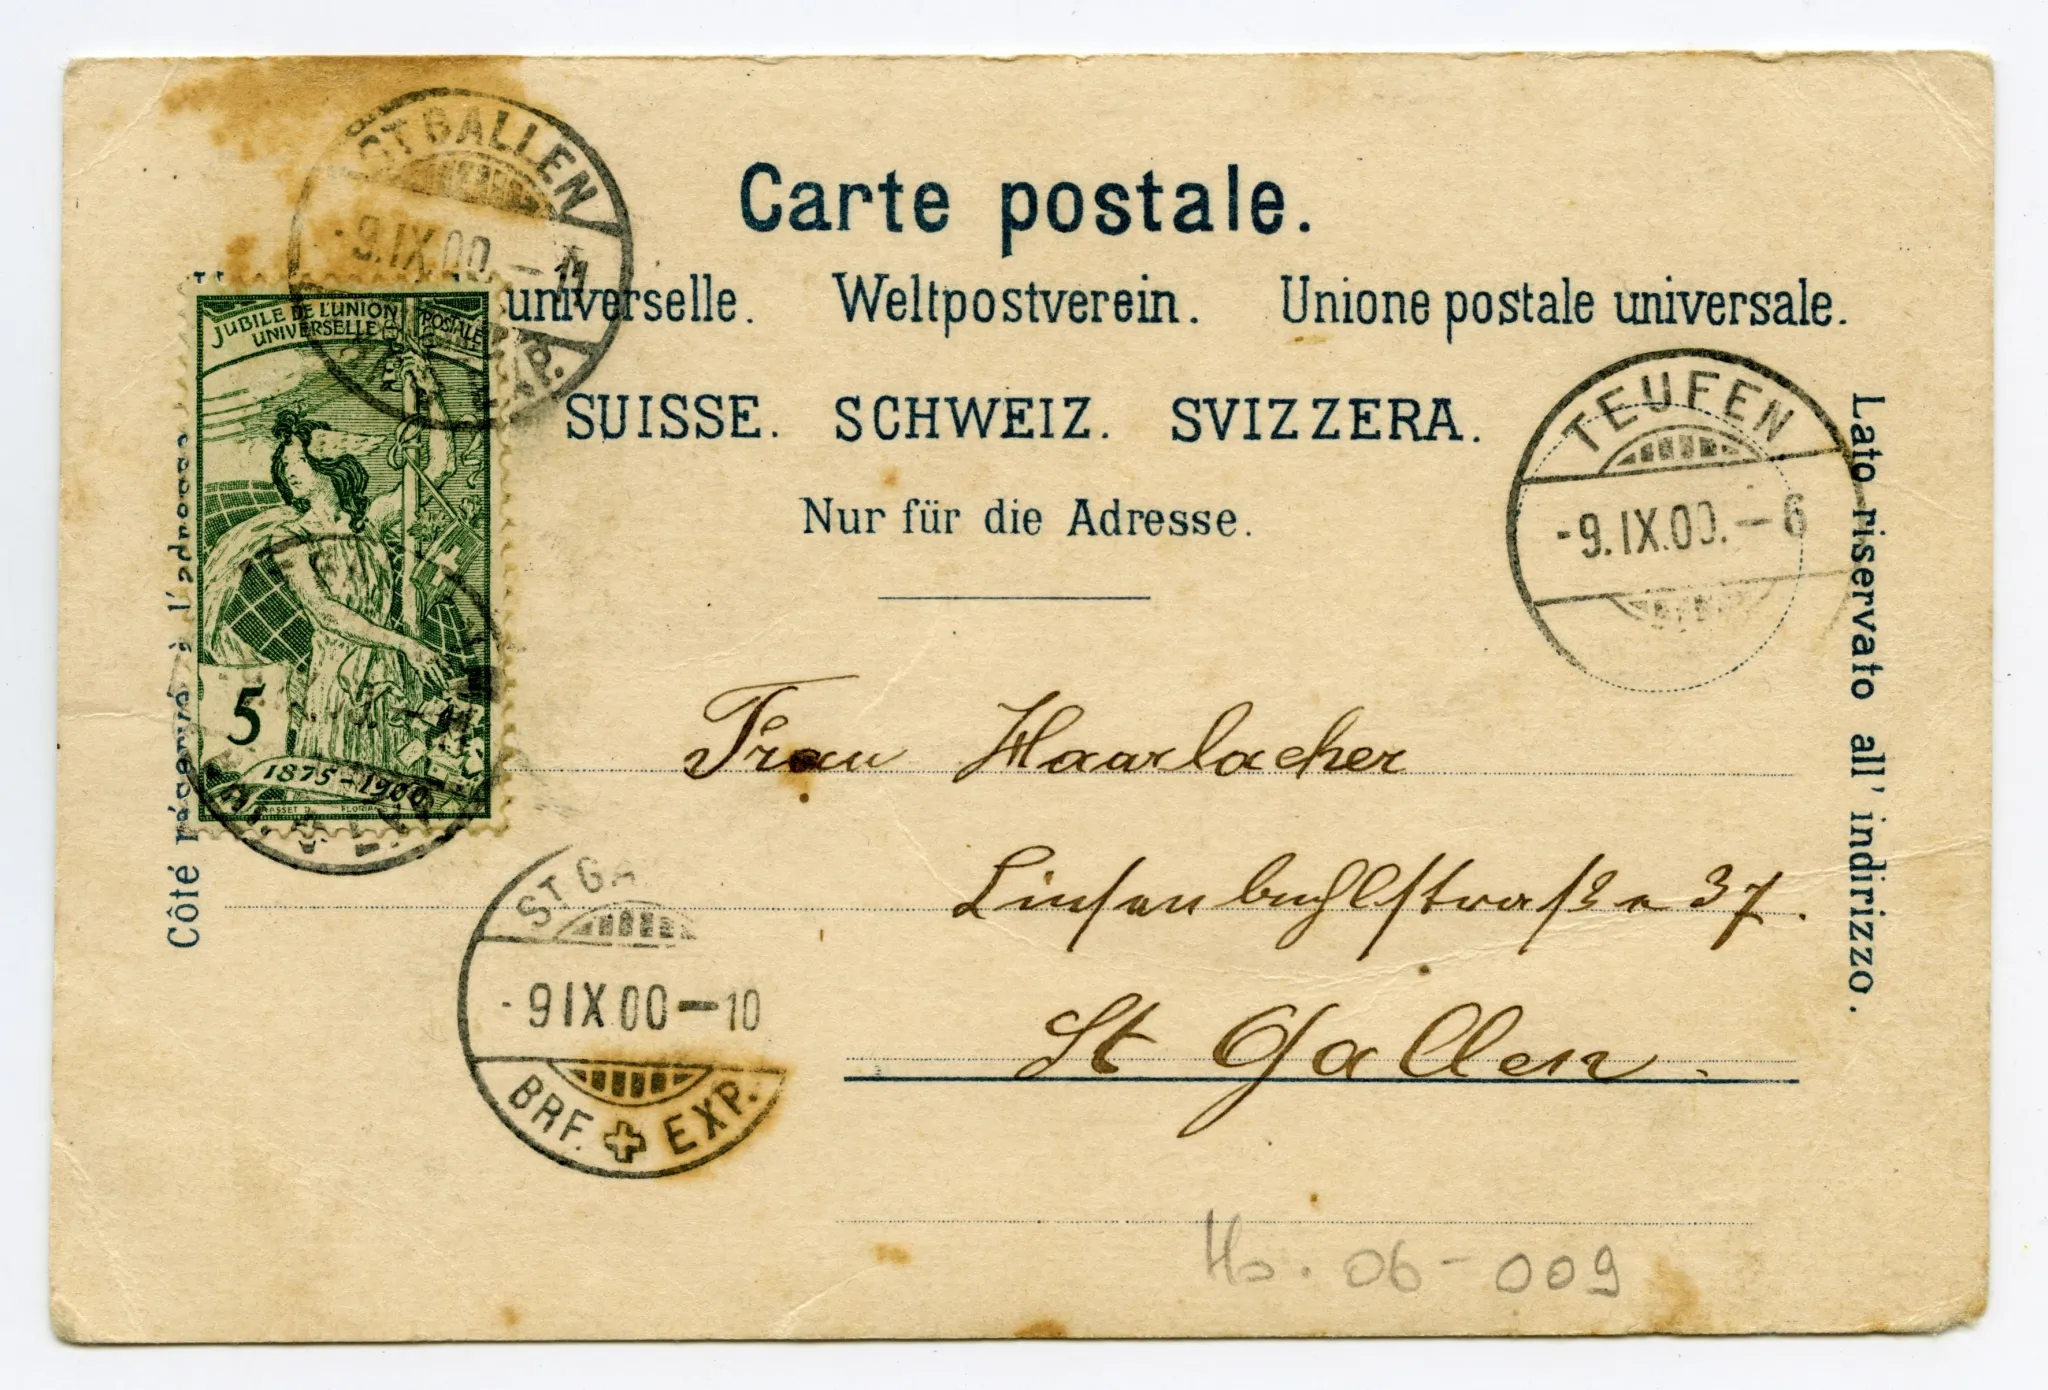 Carte postale.
universelle. Weltpostverein. Unione postale universale.
SUISSE. SCHWEIZ. SVIZZERA.
Nur für die Adresse.
Côté réservé à l'adresse
Lato riservato all' indirizzo.
ST GALLEN
-9.IX.00.-11
EXP.
JUBILE DE L'UNION POSTALE
UNIVERSELLE
5
1875-1900
TEUFEN
-9.IX.00.-6
ST GA
-9 IX 00-10
BRF. EXP.
Frau Haarlacher
Linsenbuhlstraße 37.
St Gallen.
Ho. 06-009